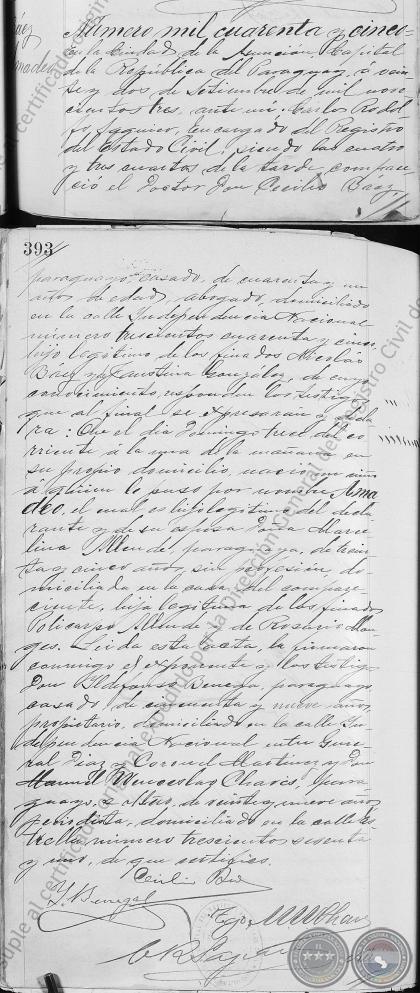 Número mil cuarenta y cinco
en la Ciudad de la Asunción, Capital
de la República del Paraguay, á vein
te y dos de Setiembre de mil nove
cientos tres, ante mí, Carlos Rodol
fo Saguier, Encargado del Registro
del Estado Civil, siendo las cuatro
y tres cuartos de la tarde, compare
ció el Doctor Don Cecilio Baez,
393
paraguayo, casado, de cuarenta y un
años de edad, abogado, domiciliado
en la calle Independencia Nacional
número trescientos cuarenta y cinco
hijo legítimo de los finados Nicolás
Baez y Faustina González, de cuyo
conocimiento responden los testigos
que al final se expresarán y decla
ra: Que el día Domingo trece del co
rriente á la una de la mañana en
su propio domicilio nació un niño
á quien le puso por nombre Ama
deo, el cual es hijo legítimo del decla
rante y de su esposa Doña Marce
lina Allende, paraguaya, de trein
ta y cinco años, sin profesión, do
miciliada en la casa del compare
ciente, hija legítima de los finados
Policarpo Allende y de Rosario
Leída esta acta, la firmaron
conmigo el exponente y los testigos
Don Ildefonso Benegas, paraguayo
casado, de cincuenta y nueve años
propietario, domiciliado en la calle In
dependencia Nacional entre Gene
ral Díaz y Coronel Martínez y Don
Manuel Wenceslao Chaves, para
guayo, soltero, de veinte y nueve años
periodista, domiciliado en la calle Es
trella número trescientos sesenta
y uno, de que certifico.
Cecilio Baez
Y. Benegas